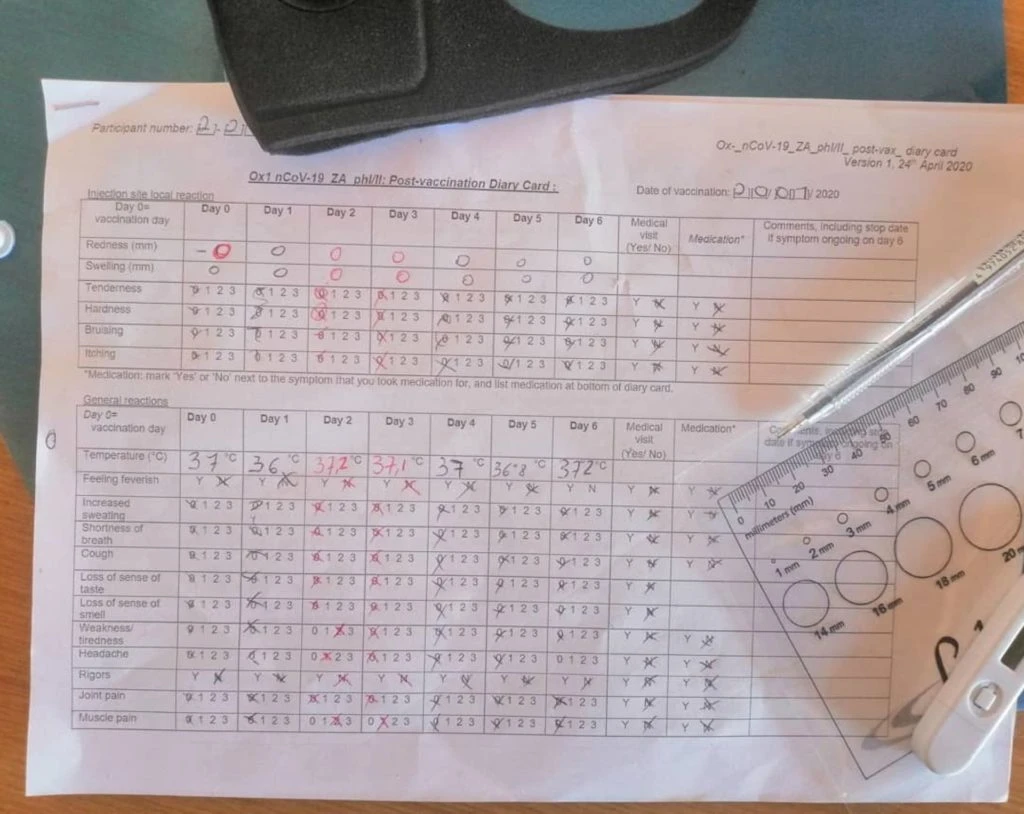 Participant number:
Ox-_nCoV-19_ZA_phI/II_ post-vax_ diary card
Version 1, 24th April 2020
Ox1 nCoV-19 ZA phI/II: Post-vaccination Diary Card :
Date of vaccination: 2020
Injection site local reaction
Day 0= vaccination day Day 0 Day 1 Day 2 Day 3 Day 4 Day 5 Day 6 Medical visit (Yes/ No) Medication* Comments, including stop date if symptom ongoing on day 6
Redness (mm) - 0 0 0 0 0 0 0
Swelling (mm) 0 0 0 0 0 0 0
Tenderness 0 1 2 3 0 1 2 3 0 1 2 3 0 1 2 3 0 1 2 3 0 1 2 3 0 1 2 3 Y N Y N
Hardness 0 1 2 3 0 1 2 3 0 1 2 3 0 1 2 3 0 1 2 3 0 1 2 3 0 1 2 3 Y N Y N
Bruising 0 1 2 3 0 1 2 3 0 1 2 3 0 1 2 3 0 1 2 3 0 1 2 3 0 1 2 3 Y N Y N
Itching 0 1 2 3 0 1 2 3 0 1 2 3 0 1 2 3 0 1 2 3 0 1 2 3 0 1 2 3 Y N Y N
*Medication: mark 'Yes' or 'No' next to the symptom that you took medication for, and list medication at bottom of diary card.
General reactions
Day 0= vaccination day Day 0 Day 1 Day 2 Day 3 Day 4 Day 5 Day 6 Medical visit (Yes/ No) Medication* Comments, including stop date if symptom ongoing on day 6
Temperature (°C) 37 °C 36 °C 37,2 °C 37,1 °C 37 °C 36.8 °C 37.2 °C
Feeling feverish Y N Y N Y N Y N Y N Y N Y N Y N Y N
Increased sweating 0 1 2 3 0 1 2 3 0 1 2 3 0 1 2 3 0 1 2 3 0 1 2 3 0 1 2 3 Y N Y N
Shortness of breath 0 1 2 3 0 1 2 3 0 1 2 3 0 1 2 3 0 1 2 3 0 1 2 3 0 1 2 3 Y N Y N
Cough 0 1 2 3 0 1 2 3 0 1 2 3 0 1 2 3 0 1 2 3 0 1 2 3 0 1 2 3 Y N Y N
Loss of sense of taste 0 1 2 3 0 1 2 3 0 1 2 3 0 1 2 3 0 1 2 3 0 1 2 3 0 1 2 3 Y N
Loss of sense of smell 0 1 2 3 0 1 2 3 0 1 2 3 0 1 2 3 0 1 2 3 0 1 2 3 0 1 2 3 Y N
Weakness/ tiredness 0 1 2 3 0 1 2 3 0 1 2 3 0 1 2 3 0 1 2 3 0 1 2 3 0 1 2 3 Y N Y N
Headache 0 1 2 3 0 1 2 3 0 1 2 3 0 1 2 3 0 1 2 3 0 1 2 3 0 1 2 3 Y N Y N
Rigors Y N Y N Y N Y N Y N Y N Y N Y N Y N
Joint pain 0 1 2 3 0 1 2 3 0 1 2 3 0 1 2 3 0 1 2 3 0 1 2 3 0 1 2 3 Y N Y N
Muscle pain 0 1 2 3 0 1 2 3 0 1 2 3 0 1 2 3 0 1 2 3 0 1 2 3 0 1 2 3 Y N Y N
0 10 20 30 40 50 60 70 80 90
millimeters (mm)
1 mm 2 mm 3 mm 4 mm 5 mm 6 mm
14 mm 16 mm 18 mm 20